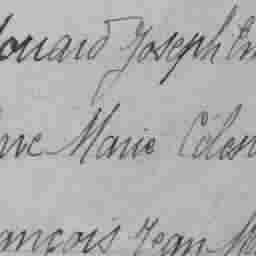 douard Joseph
Marie Céles
ançois Jean